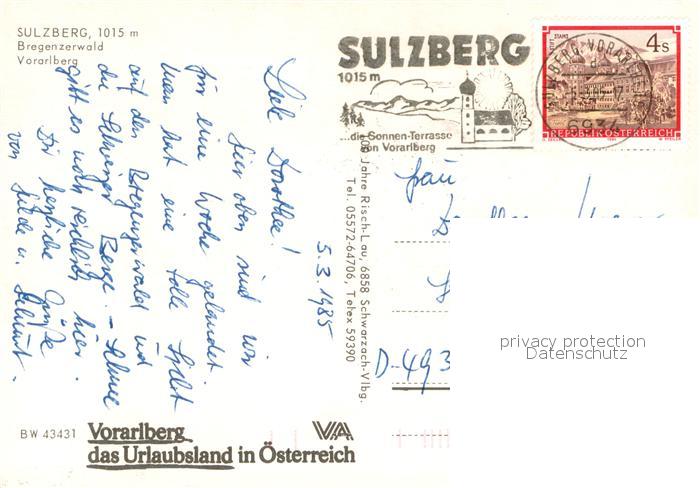 SULZBERG, 1015 m
Bregenzerwald
Vorarlberg
SULZBERG
1015 m
...die Sonnen-Terrasse
von Vorarlberg
4s
STIFT STAMS
REPUBLIK ÖSTERREICH
SULZBERG, VORARLB
6934
5.3.1985
Liebe Dorothee!
Hier oben sind wir
für eine Woche gelandet.
Man hat eine tolle Sicht
auf den Bregenzerwald und
die Schweizer Berge. - Schnee
gibt es noch reichlich hier.
Dir herzliche Grüße
von Hilde u. Helmut.
Jahre Risch-Lau, 6858 Schwarzach-Vlbg.
Tel. 05572-64706, Telex 59390
Frau
D-493
privacy protection
Datenschutz
BW 43431
Vorarlberg
das Urlaubsland in Österreich
VA